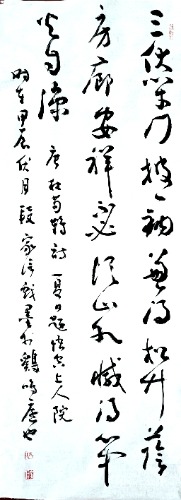 三伏闭门披一衲兼无松竹荫
房廊安禅不必须山水灭得心中
火自凉 唐杜荀鹤诗夏日题悟空上人院
时在甲辰伏月段家戏墨于鸡鸣庐也